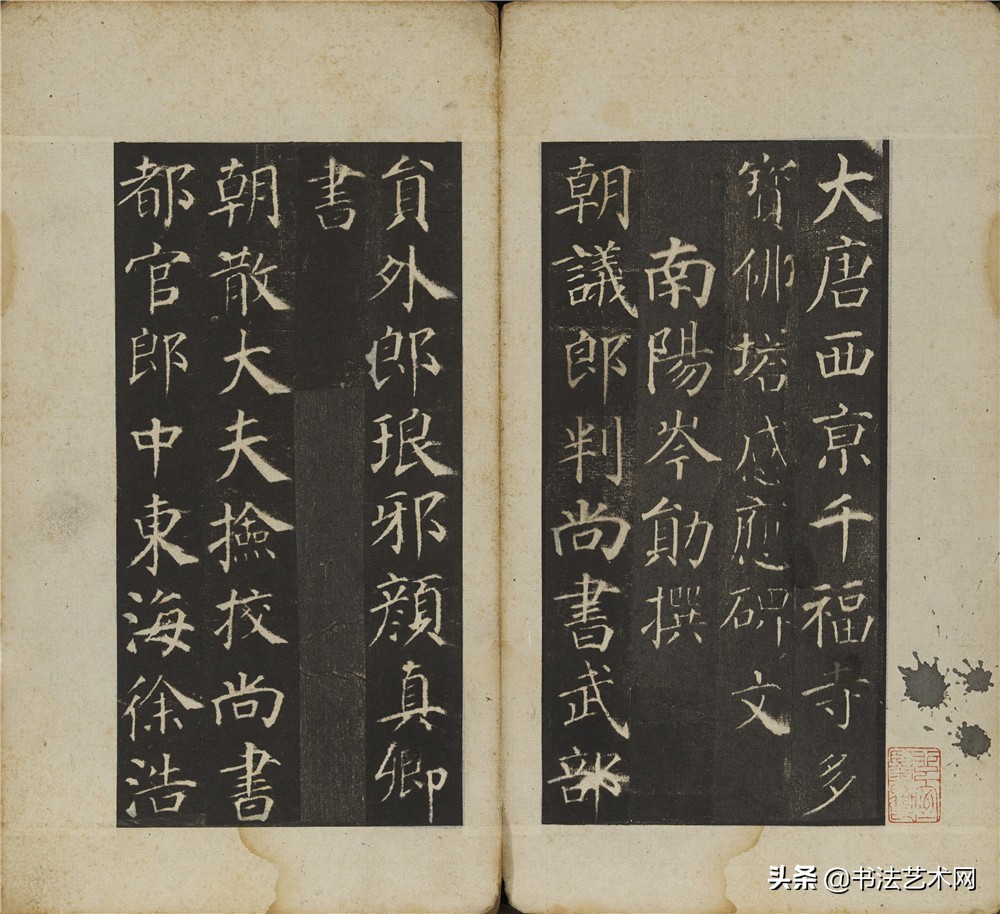 大唐西京千福寺多
寶佛塔感應碑文
南陽岑勛撰
朝議郎判尚書武部
貟外郎琅邪顏真卿
書
朝散大夫撿挍尚書
都官郎中東海徐浩
头条 @书法艺术网